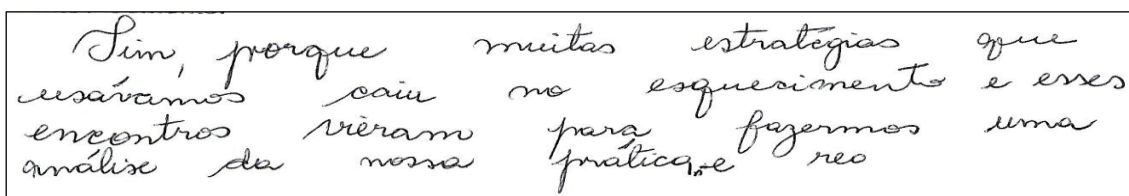 Sim, porque muitas estratégias que
usávamos caiu no esquecimento e esses
encontros vieram para fazermos uma
análise da nossa prática, e reo